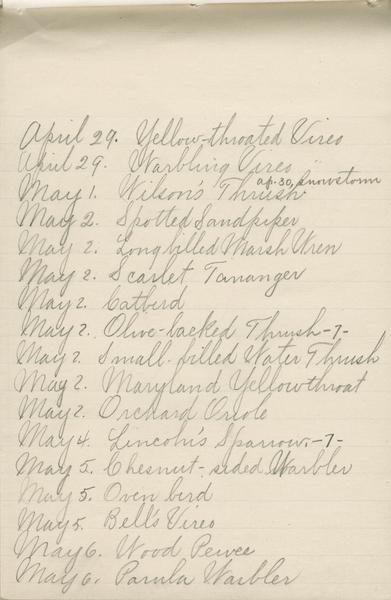 April 29. Yellow-throated Vireo
April 29. Warbling Vireo
May 1. Wilson's Thrush ap. 30, snowstorm
May 2. Spotted Sandpiper
May 2. Long billed Marsh Wren
May 2. Scarlet Tananger
May 2. Catbird
May 2. Olive-backed Thrush -?-
May 2. Small-billed Water Thrush
May 2. Maryland Yellowthroat
May 2. Orchard Oriole
May 4. Lincoln's Sparrow. -?-
May 5. Chesnut-sided Warbler
May 5. Oven bird
May 5. Bell's Vireo
May 6. Wood Pewee
May 6. Parula Warbler